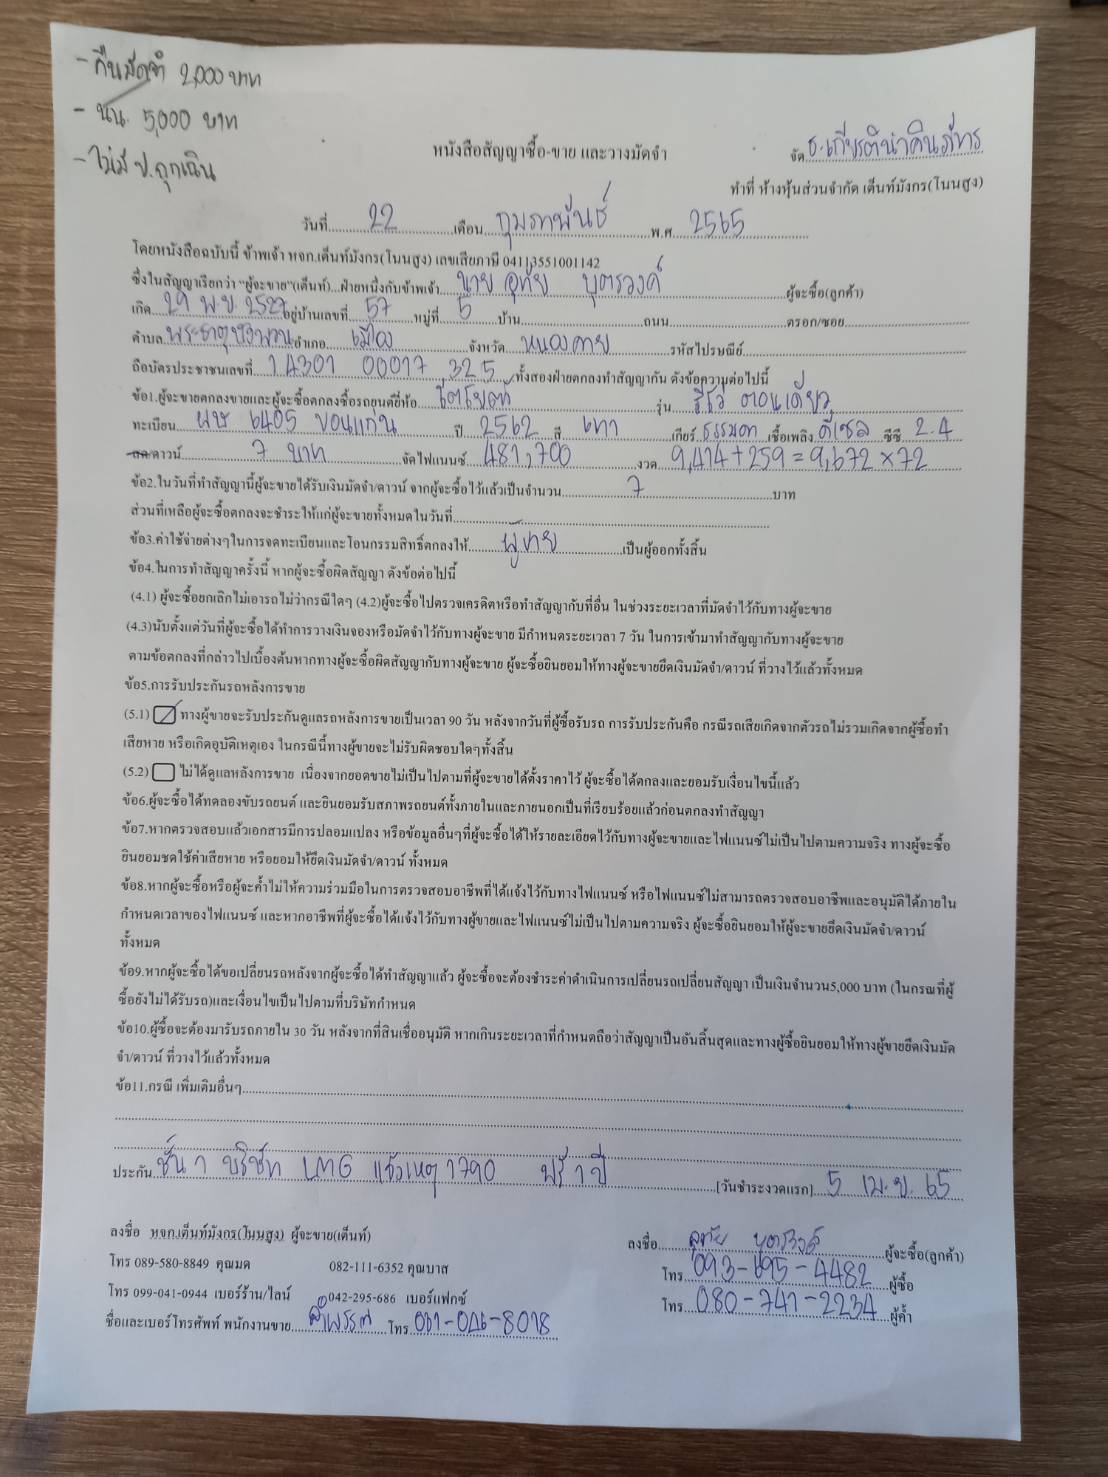 - คืนมัดจำ 2,000 บาท
- นน. 5,000 บาท
- ไม่มี ป.ฉุกเฉิน
หนังสือสัญญาซื้อ-ขาย และวางมัดจำ
จัด ธ.เกียรตินาคินภัทร
ทำที่ ห้างหุ้นส่วนจำกัด เต็นท์มังกร(โนนสูง)
วันที่ 22 เดือน กุมภาพันธ์ พ.ศ. 2565
โดยหนังสือฉบับนี้ ข้าพเจ้า หจก.เต็นท์มังกร(โนนสูง) เลขเสียภาษี 04113551001142
ซึ่งในสัญญาเรียกว่า "ผู้จะขาย"(เต็นท์)...ฝ่ายหนึ่งกับข้าพเจ้า นาย อุทัย บุตรวงค์ ผู้จะซื้อ(ลูกค้า)
เกิด 29 พ.ย. 2527 อยู่บ้านเลขที่ 57 หมู่ที่ 5 บ้าน ถนน ตรอก/ซอย
ตำบล พระธาตุบังพวน อำเภอ เมือง จังหวัด หนองคาย รหัสไปรษณีย์
ถือบัตรประชาชนเลขที่ 1 4301 00017 32 5 ทั้งสองฝ่ายตกลงทำสัญญากัน ดังข้อความต่อไปนี้
ข้อ1.ผู้จะขายตกลงขายและผู้จะซื้อตกลงซื้อรถยนต์ยี่ห้อ โตโยต้า รุ่น รีโว่ ตอนเดียว
ทะเบียน ผษ 6405 ขอนแก่น ปี 2562 สี เทา เกียร์ ธรรมดา เชื้อเพลิง ดีเซล ซีซี 2.4
สด/ดาวน์ 7 บาท จัดไฟแนนซ์ 481,700 งวด 9,414+259=9,672×72
ข้อ2.ในวันที่ทำสัญญานี้ผู้จะขายได้รับเงินมัดจำ/ดาวน์ จากผู้จะซื้อไว้แล้วเป็นจำนวน 7 บาท
ส่วนที่เหลือผู้จะซื้อตกลงจะชำระให้แก่ผู้จะขายทั้งหมดในวันที่
ข้อ3.ค่าใช้จ่ายต่างๆในการจดทะเบียนและโอนกรรมสิทธิ์ตกลงให้ ผู้ขาย เป็นผู้ออกทั้งสิ้น
ข้อ4.ในการทำสัญญาครั้งนี้ หากผู้จะซื้อผิดสัญญา ดังข้อต่อไปนี้
(4.1) ผู้จะซื้อยกเลิกไม่เอารถไม่ว่ากรณีใดๆ (4.2)ผู้จะซื้อไปตรวจเครดิตหรือทำสัญญากับที่อื่น ในช่วงระยะเวลาที่มัดจำไว้กับทางผู้จะขาย
(4.3)นับตั้งแต่วันที่ผู้จะซื้อได้ทำการวางเงินจองหรือมัดจำไว้กับทางผู้จะขาย มีกำหนดระยะเวลา 7 วัน ในการเข้ามาทำสัญญากับทางผู้จะขาย
ตามข้อตกลงที่กล่าวไปเบื้องต้นหากทางผู้จะซื้อผิดสัญญากับทางผู้จะขาย ผู้จะซื้อยินยอมให้ทางผู้จะขายยึดเงินมัดจำ/ดาวน์ ที่วางไว้แล้วทั้งหมด
ข้อ5.การรับประกันรถหลังการขาย
(5.1) ทางผู้ขายจะรับประกันดูแลรถหลังการขายเป็นเวลา 90 วัน หลังจากวันที่ผู้ซื้อรับรถ การรับประกันคือ กรณีรถเสียเกิดจากตัวรถไม่รวมเกิดจากผู้ซื้อทำ
เสียหาย หรือเกิดอุบัติเหตุเอง ในกรณีนี้ทางผู้ขายจะไม่รับผิดชอบใดๆทั้งสิ้น
(5.2) ไม่ได้ดูแลหลังการขาย เนื่องจากยอดขายไม่เป็นไปตามที่ผู้จะขายได้ตั้งราคาไว้ ผู้จะซื้อได้ตกลงและยอมรับเงื่อนไขนี้แล้ว
ข้อ6.ผู้จะซื้อได้ทดลองขับรถยนต์ และยินยอมรับสภาพรถยนต์ทั้งภายในและภายนอกเป็นที่เรียบร้อยแล้วก่อนตกลงทำสัญญา
ข้อ7.หากตรวจสอบแล้วเอกสารมีการปลอมแปลง หรือข้อมูลอื่นๆที่ผู้จะซื้อได้ให้รายละเอียดไว้กับทางผู้จะขายและไฟแนนซ์ไม่เป็นไปตามความจริง ทางผู้จะซื้อ
ยินยอมชดใช้ค่าเสียหาย หรือยอมให้ยึดเงินมัดจำ/ดาวน์ ทั้งหมด
ข้อ8.หากผู้จะซื้อหรือผู้จะค้ำไม่ให้ความร่วมมือในการตรวจสอบอาชีพที่ได้แจ้งไว้กับทางไฟแนนซ์ หรือไฟแนนซ์ไม่สามารถตรวจสอบอาชีพและอนุมัติได้ภายใน
กำหนดเวลาของไฟแนนซ์ และหากอาชีพที่ผู้จะซื้อได้แจ้งไว้กับทางผู้ขายและไฟแนนซ์ไม่เป็นไปตามความจริง ผู้จะซื้อยินยอมให้ผู้จะขายยึดเงินมัดจำ/ดาวน์
ทั้งหมด
ข้อ9.หากผู้จะซื้อได้ขอเปลี่ยนรถหลังจากผู้จะซื้อได้ทำสัญญาแล้ว ผู้จะซื้อจะต้องชำระค่าดำเนินการเปลี่ยนรถเปลี่ยนสัญญา เป็นเงินจำนวน5,000 บาท (ในกรณที่ผู้
ซื้อยังไม่ได้รับรถ)และเงื่อนไขเป็นไปตามที่บริษัทกำหนด
ข้อ10.ผู้ซื้อจะต้องมารับรถภายใน 30 วัน หลังจากที่สินเชื่ออนุมัติ หากเกินระยะเวลาที่กำหนดถือว่าสัญญาเป็นอันสิ้นสุดและทางผู้ซื้อยินยอมให้ทางผู้ขายยึดเงินมัด
จำ/ดาวน์ ที่วางไว้แล้วทั้งหมด
ข้อ11.กรณี เพิ่มเติมอื่นๆ
ประกัน ชั้น 1 บริษัท LMG แจ้งเหตุ 1790 ฟรี 1 ปี [วันชำระงวดแรก] 5 เม.ย. 65
ลงชื่อ หจก.เต็นท์มังกร(โนนสูง) ผู้จะขาย(เต็นท์)
ลงชื่อ อุทัย บุตรวงค์ ผู้จะซื้อ(ลูกค้า)
โทร 089-580-8849 คุณมด 082-111-6352 คุณบาส
โทร 093-695-4482 ผู้ซื้อ
โทร 099-041-0944 เบอร์ร้าน/ไลน์ 042-295-686 เบอร์แฟกซ์
โทร 080-741-2234 ผู้ค้ำ
ชื่อและเบอร์โทรศัพท์ พนักงานขาย โทร 061-046-8018